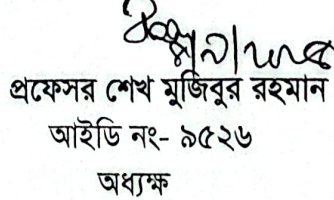 প্রফেসর শেখ মুজিবুর রহমান
আইডি নং- ৯৫২৬
অধ্যক্ষ